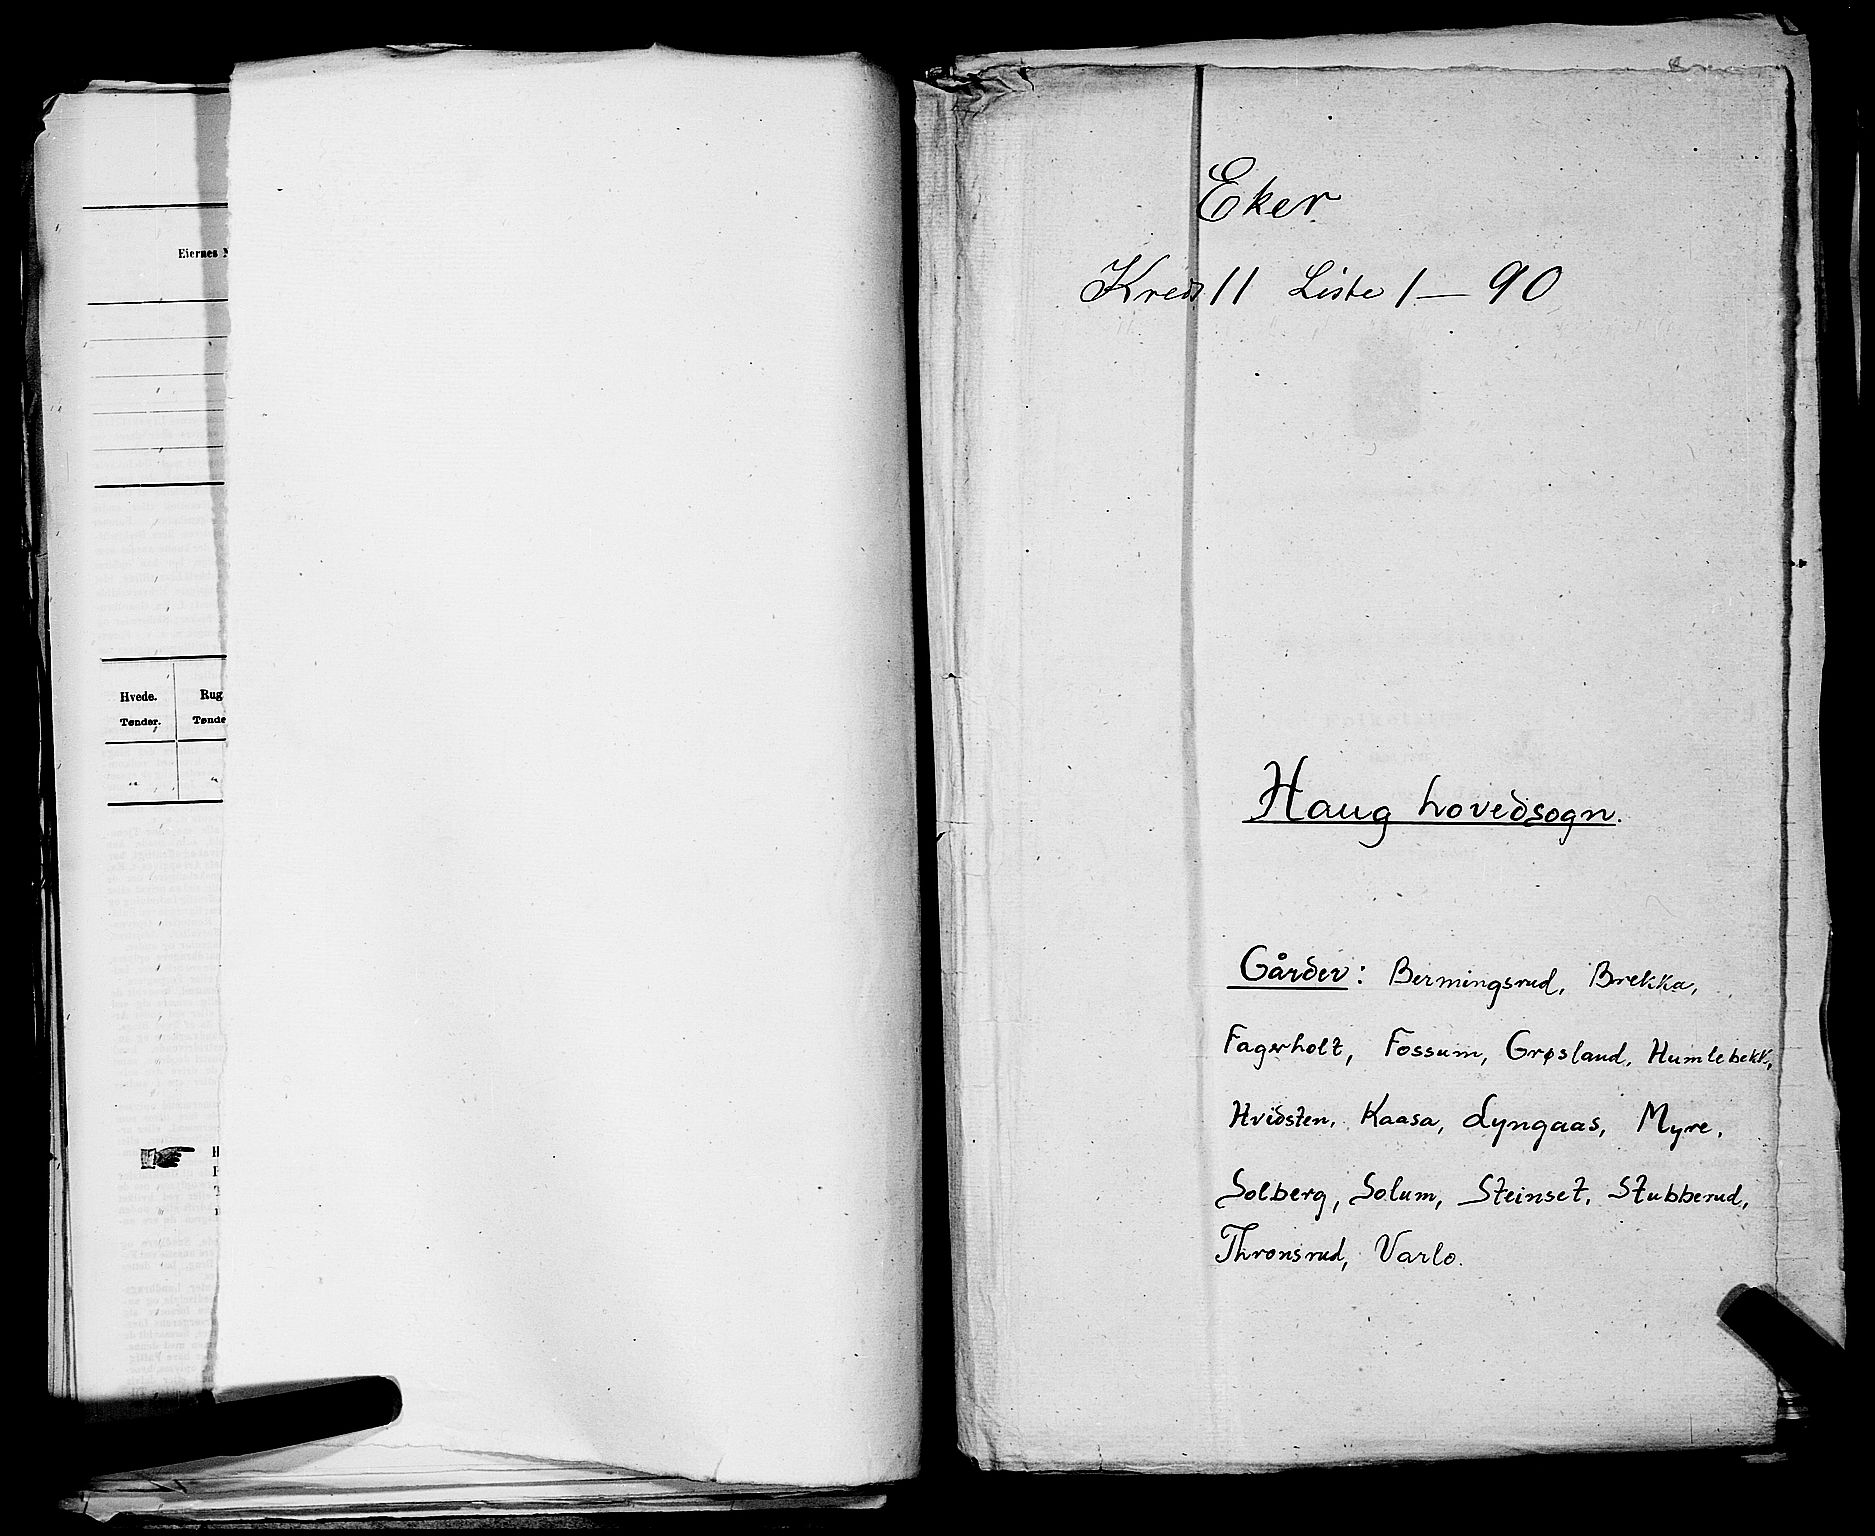 Eiernes
Hvede. Rug
Tønder. Tønde
Eker.
Kreds 11 Liste 1 — 90
Haug hovedsogn.
Gårder: Bermingsrud, Brekka,
Fagerholt, Fossum, Grøsland, Humlebekk,
Hvidsten, Kaasa, Lyngaas, Myre,
Solberg, Solum, Steinset, Stubberud,
Thronsrud, Varlo.